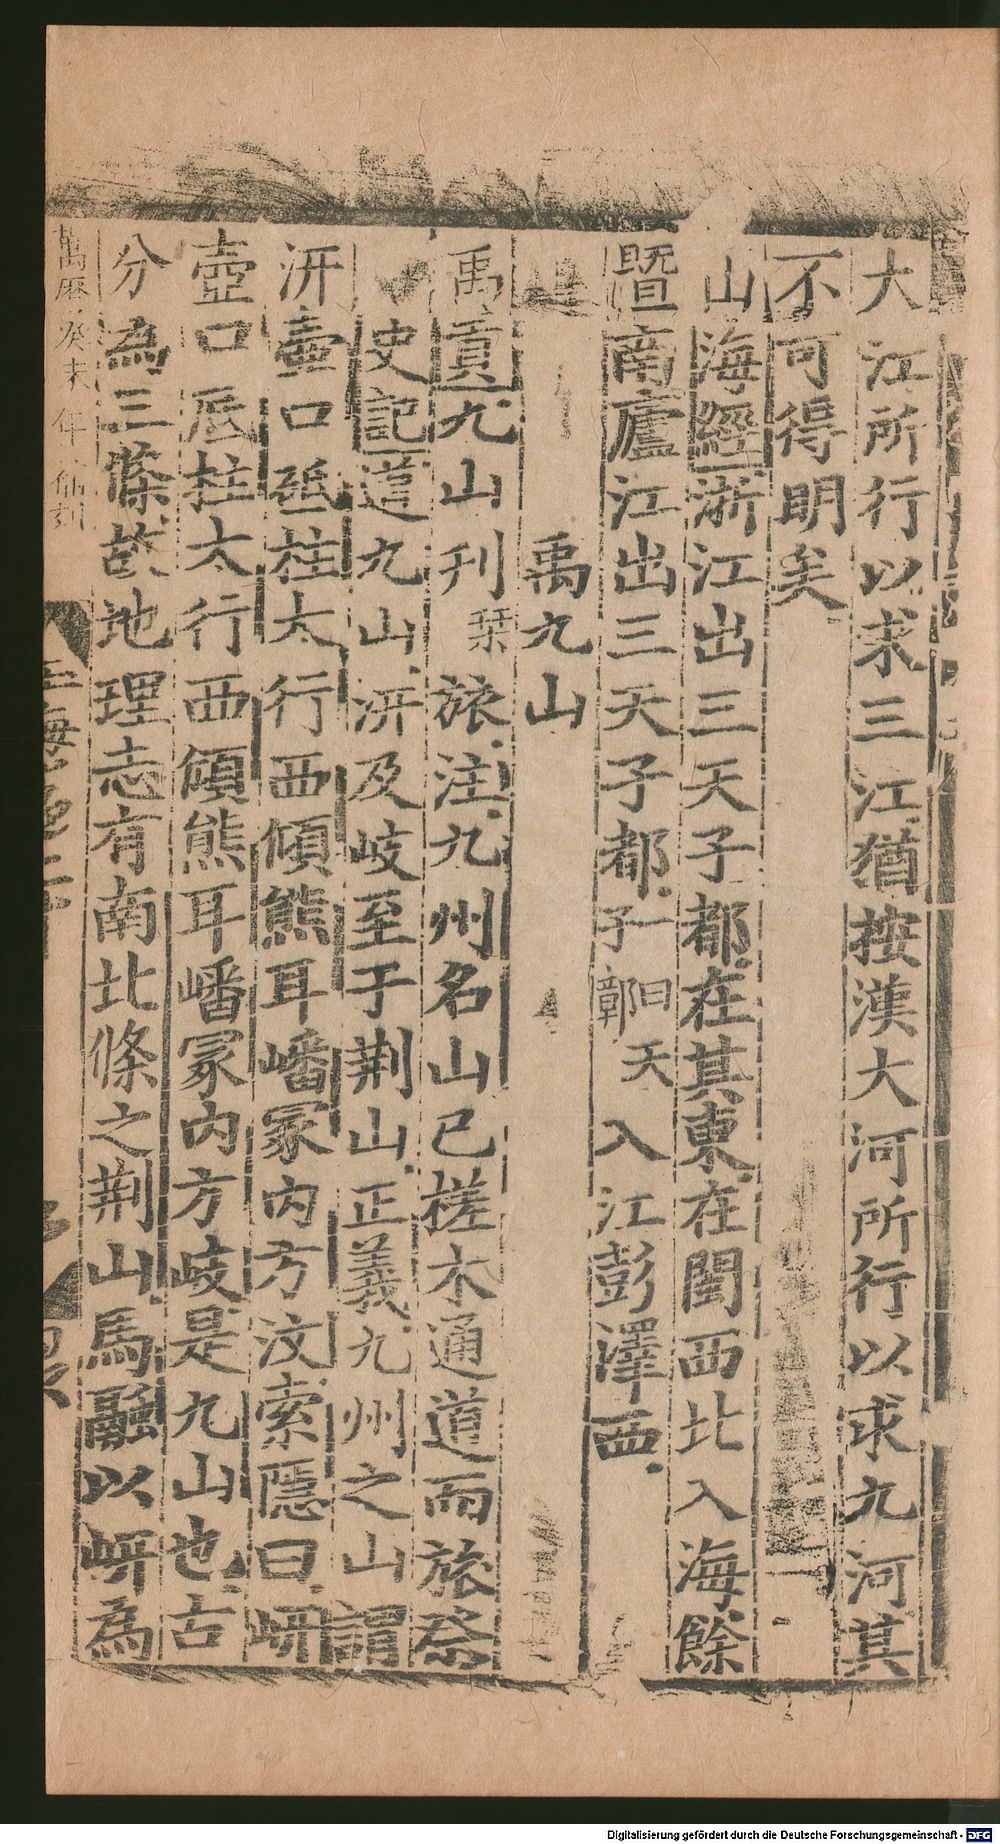 大江所行以求三江猶按漢大河所行以求九河其
不可得明矣
山海經浙江出三天子都在其東在閩西北入海餘
暨南廬江出三天子都一曰天子鄣入江彭澤西
禹九山
禹貢九山刊栞旅注九州名山已槎木通道而旅祭
史記道九山汧及岐至于荆山正義九州之山謂
汧壺口砥柱太行西傾熊耳嶓冢内方汶索隱曰岍
壺口底柱太行西傾熊耳嶓冢内方岐是九山也古
分為三條故地理志有南北條之荆山馬融以岍為
萬曆癸未年
玉海
Digitalisierung gefördert durch die Deutsche Forschungsgemeinschaft - DFG